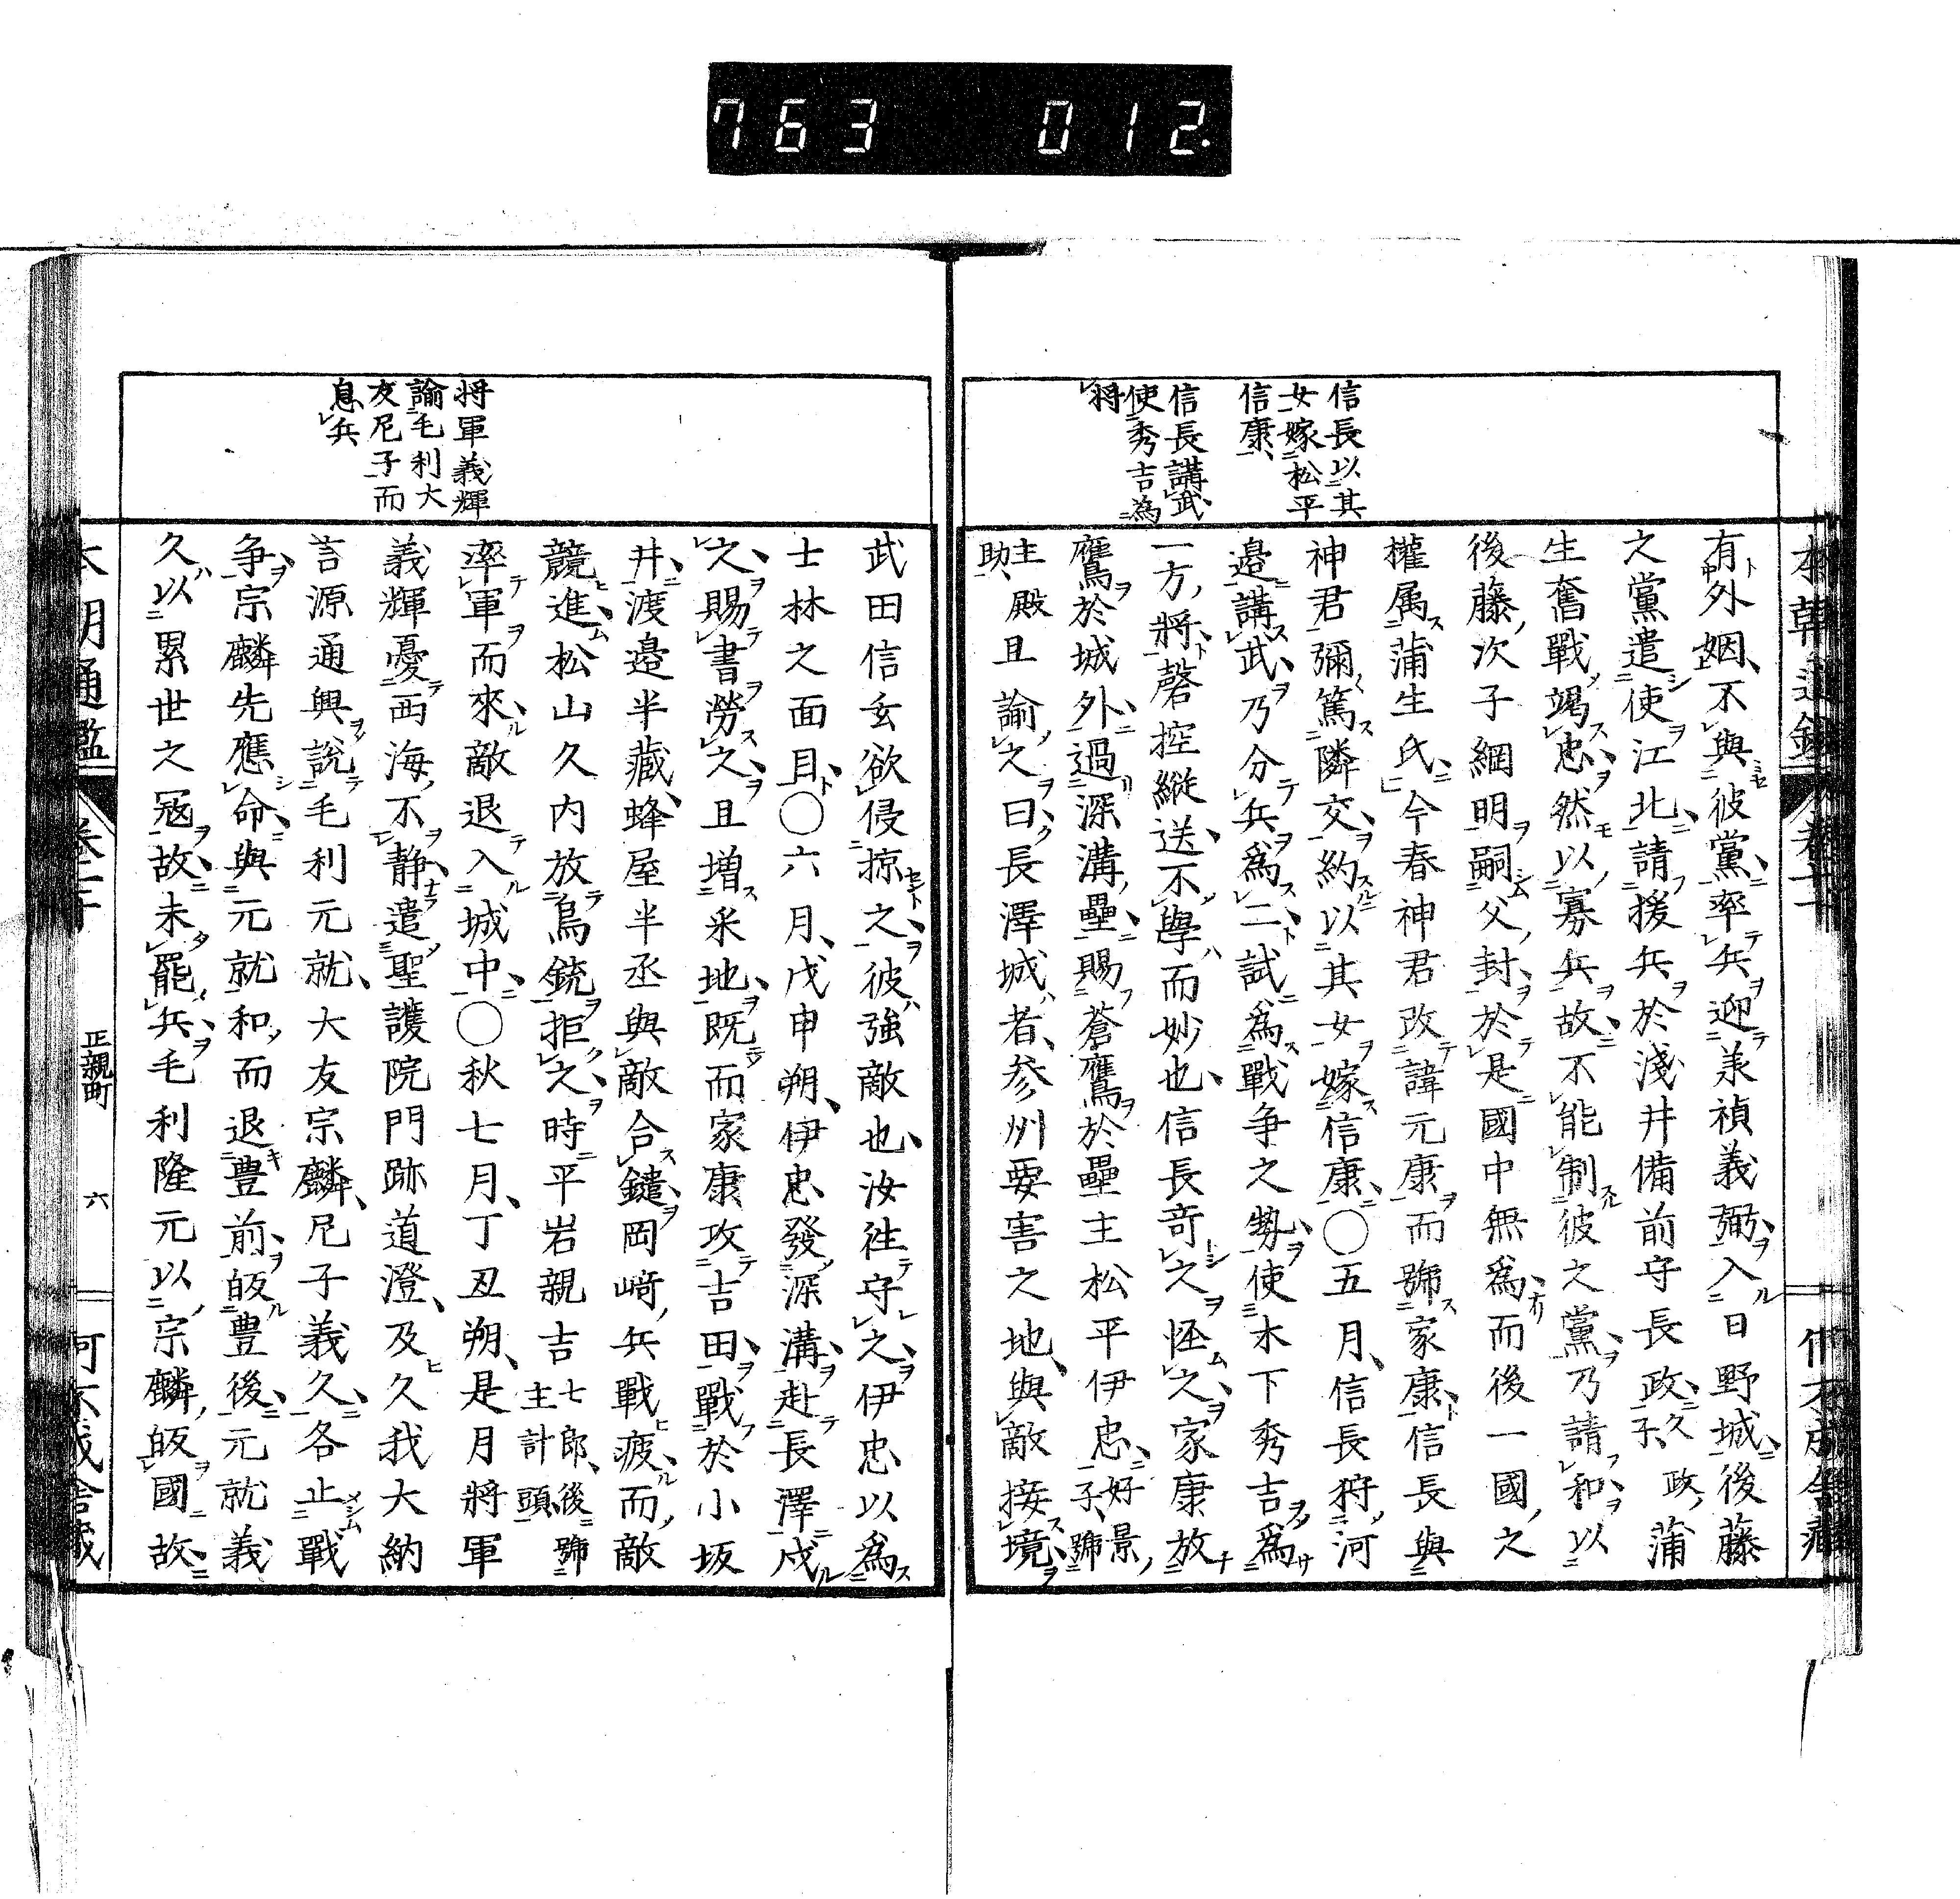 763 012.
信長以其
女嫁松平
信康
信長講武
使秀吉為
將
有外姻不與彼黨率兵迎義禎義弼入日野城後藤
之黨遣使江北請援兵於淺井備前守長政久政子蒲
生奮戰竭忠然以寡兵故不能制彼之黨乃請和以
後藤次子綱明嗣父封於是國中無爲而後一國之
權属蒲生氏今春神君改諱元康而號家康信長與
神君彌篤隣交約以其女嫁信康〇五月信長狩河
邉講武乃分兵爲二試爲戰争之勢使木下秀吉爲
一方將磬控縱送不學而妙也信長竒之怪之家康放
鷹於城外過深溝壘賜蒼鷹於壘主松平伊忠好景子號
主殿助且諭之曰長澤城者參州要害之地與敵接境
將軍義輝
諭毛利大
友尼子而
息兵
武田信玄欲侵掠之彼強敵也汝徃守之伊忠以爲
士林之面目〇六月戊申朔伊忠發深溝赴長澤戍
之賜書勞之且増采地既而家康攻吉田戰於小坂
井渡邉半藏蜂屋半丞與敵合鑓岡﨑兵戰疲而敵
競進松山久内放鳥銃拒之時平岩親吉七郎後號主計頭
率軍而來敵退入城中〇秋七月丁丑朔是月將軍
義輝憂西海不静遣聖護院門跡道澄及久我大納
言源通興說毛利元就大友宗麟尼子義久各止戰
争宗麟先應命與元就和而退豊前皈豊後元就義
久以累世之冦故未罷兵毛利隆元以宗麟皈國故
正親町
六